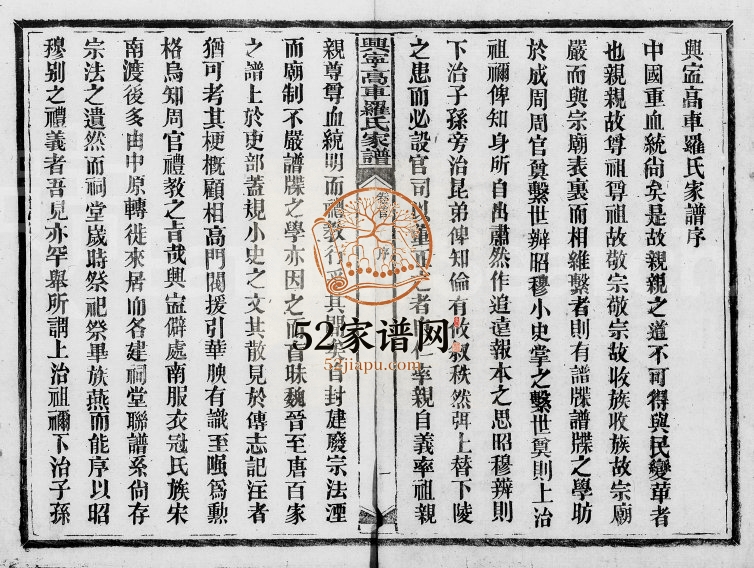 興寧高車羅氏家譜序
中國重血統尚矣是故親親之道不可得與民變革者
也親親故尊祖尊祖故敬宗敬宗故收族收族故宗廟
嚴而與宗廟表裏而相維繫者則有譜牒譜牒之學昉
於成周周官奠繫世辨昭穆小史掌之繫世奠則上治
祖禰俾知身所自出肅然作追遠報本之思昭穆辨則
下治子孫旁治昆弟俾知倫有攸叙秩然弭上替下陵
之患而必設官司以重之者自仁率親自義率祖親
興寧高車羅氏家譜
卷首 序
一
親尊尊血統明而禮教行乎其間矣自封建廢宗法湮
而廟制不嚴譜牒之學亦因之而盲昧魏晉至唐百家
之譜上於吏部蓋規小史之文其散見於傳志記注者
猶可考其梗概顧相高門閥援引華腴有識至頤爲勳
格烏知周官禮教之旨哉興寧僻處南服衣冠氏族宋
南渡後多由中原轉徙來居而各建祠堂聯譜系尚存
宗法之遺然而祠堂歲時祭祀祭畢族燕而能序以昭
穆别之禮義者吾見亦罕舉所謂上治祖禰下治子孫
52家谱网
52jiapu.com